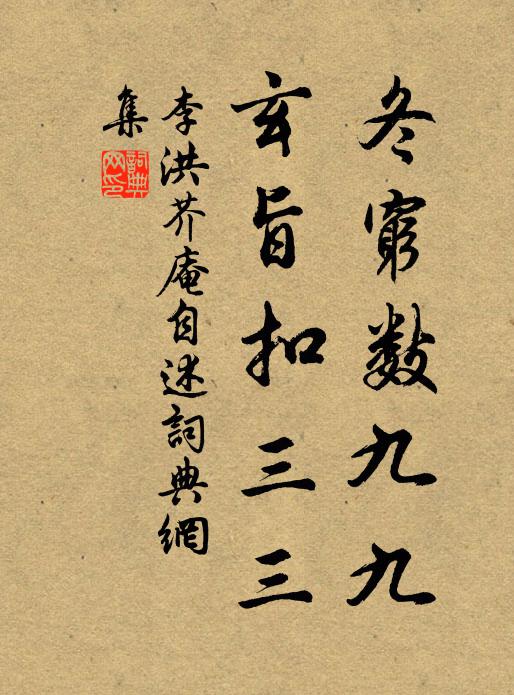 冬窮數九九
玄旨扣三三
李洪芥庵自述詞典網
集
詞典網印